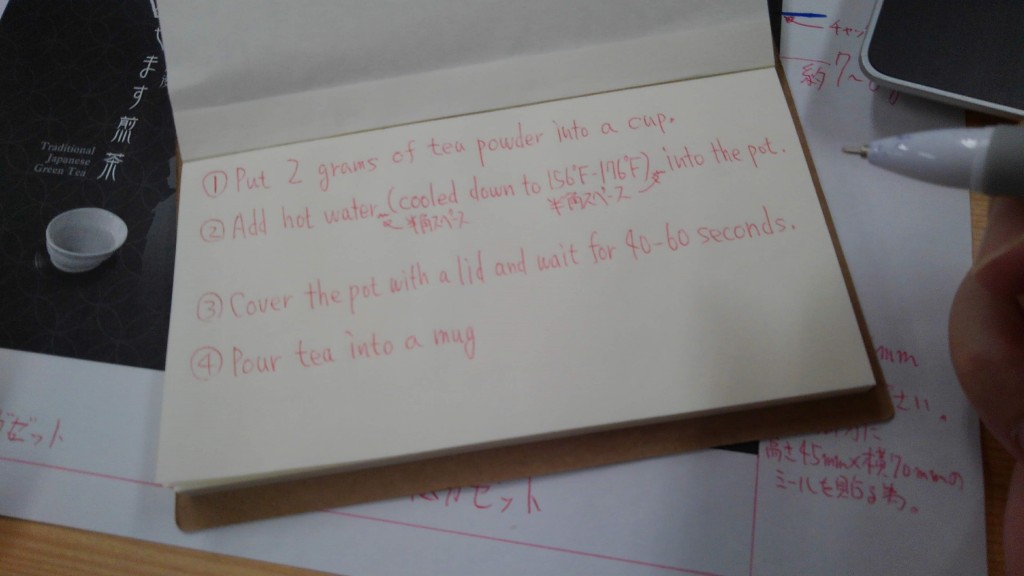 ます煎茶
Traditional
Japanese
Green Tea
① Put 2 grams of tea powder into a cup.
② Add hot water (cooled down to 156°F-176°F) into the pot.
半角スペース
半角スペース
③ Cover the pot with a lid and wait for 40-60 seconds.
④ Pour tea into a mug
チャッ
約7~
mm
さい。
高さ45mm×横70mmの
シールを貼る為。
ガゼット
ガゼット